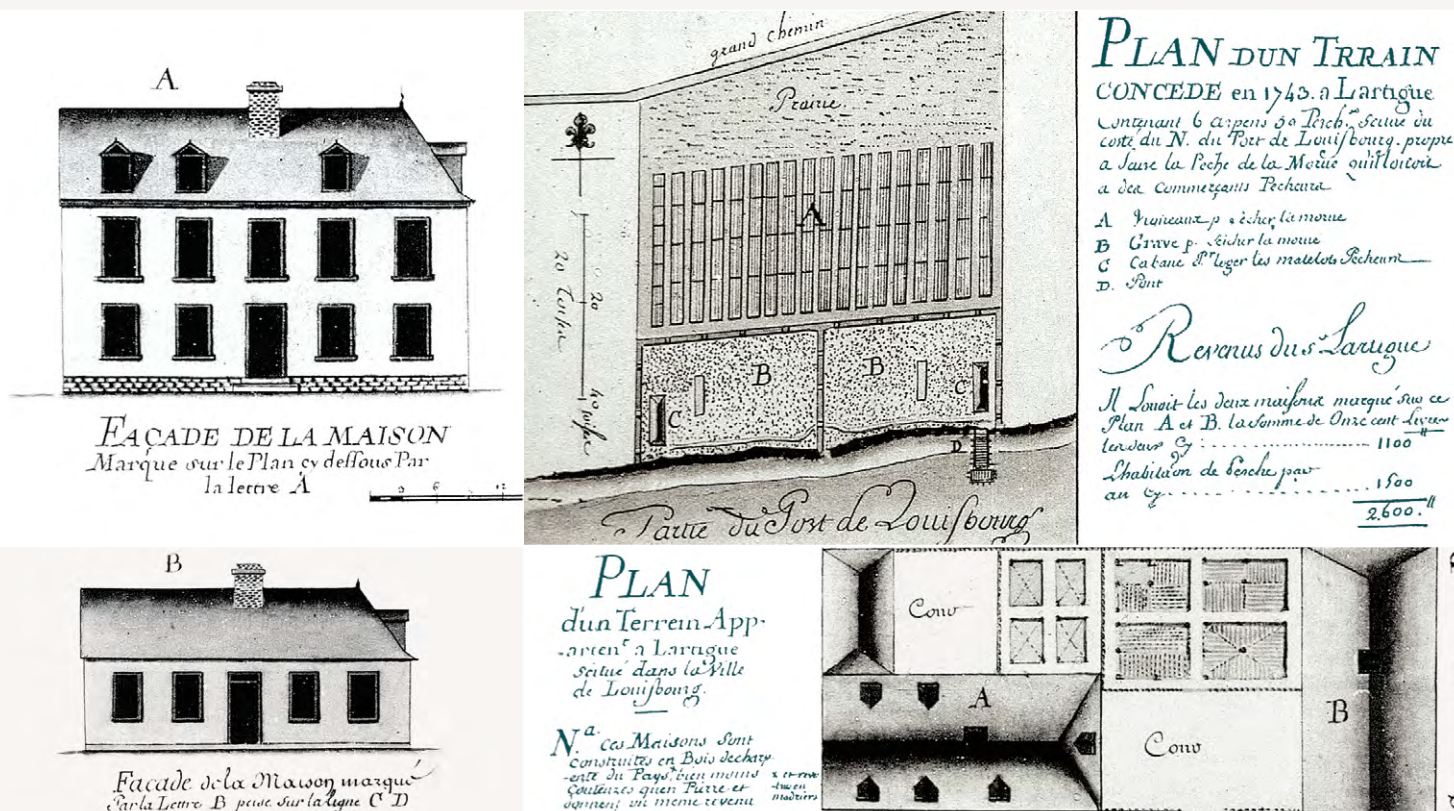 A
FAÇADE DE LA MAISON
Marque sur le Plan cy dessous Par
la lettre A
6 12
grand chemin
Prairie
A
20 Toises
20
40 toises
B B
C C
D
Partie du Port de Louisbourg
PLAN DUN TRRAIN
CONCEDE en 1743. a Lartigue
Contenant 6 arpens 50 Perch. Scitué du
costé du N. du Port de Louisbourg. propre
a faire la Peche de la Morue quil louoit
a des Commerçants Pecheurs
A p. sécher la morue
B Grave p. sécher la morue
C Cabane Pr. loger les matelots Pecheurs
D. Pont
Revenus du sr. Lartigue
Il Louoit les deux maisons marqué sur ce
Plan A et B. la somme de Onze cent Livres
les deux Cy 1100"
Lhabitaon de Pesche par
an Cy 1500
2,600."
B
Façade de la Maison marqué
Par la Lettre B prise sur la ligne C D
PLAN
d'un Terrein App-
-arten.t a Lartigue
scitué dans la Ville
de Louisbourg.
N.a Ces Maisons Sont
Construites en Bois decharp-
-ente du Pays, bien moins
Couteuzes quen Pierre et
donnent un meme revenu
madriers
Cour
A
Cour
B